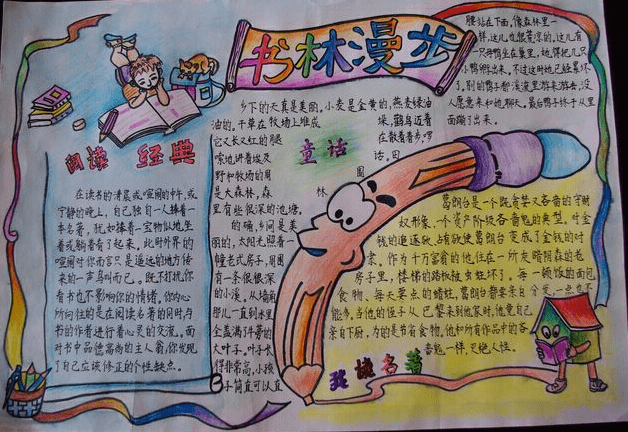 书林漫步
阅读 经典
在读书的清晨或喧闹的中午,或
宁静的晚上,自己独自一人捧着一
本名著,犹如捧着一宝物似地,坐
着或躺着看了起来,此时外界的
喧闹对你而言只是遥远的地方传
来的一声鸟叫而已。既不打扰你
看书也不影响你的情绪,你内心
所向往的是在阅读名著的同时与
书的作者进行着心灵的交流。面
对书中品德高尚的主人翁,你发现
了自己应该修正的个性缺点。
童话
乡下的天真是美丽。小麦是金黄的,燕麦绿油
油的。干草在牧场上堆成垛,鹳鸟迈着
它又长又红的腿在散着步,啰
嗦地讲着埃及话。田
野和牧场的周围
是大森林,森林
里有些很深的池塘。
的确,乡间是美
丽的,太阳光照着一
幢老式房子,周围
有一条很深
的小溪。从墙角
那儿一直到水里
全盖满了牛蒡的
大叶子。叶子长
得非常高,小孩
子简直可以直
腰站在下面,像森林里一
样,这儿也很荒凉的。这儿有
一只母鸭坐在巢里,她得把几只
小鸭孵出来。不过这时她已经累坏
了。别的鸭子都在溪流里游来游去,没
人愿意来和她聊天。最后鸭子终于从里
面蹦了出来。
葛朗台是一个既贪婪又吝啬的守财
奴形象,一个资产阶级吝啬鬼的典型。对金
钱的追逐欲,占有欲使葛朗台变成了金钱的对
象,作为十万富翁的他,住在一所灰暗阴森的老
房子里,楼梯的踏板被虫蛀坏了。每一顿饭的面包
食物,每天要点的蜡烛,葛朗台都要亲自分发,一点也不
能多,当他的侄子从巴黎来到他家时,他竟自己
亲自下厨,为的是节省食物。他和所有作品中的吝
啬鬼一样,灭绝人性。
我读名著